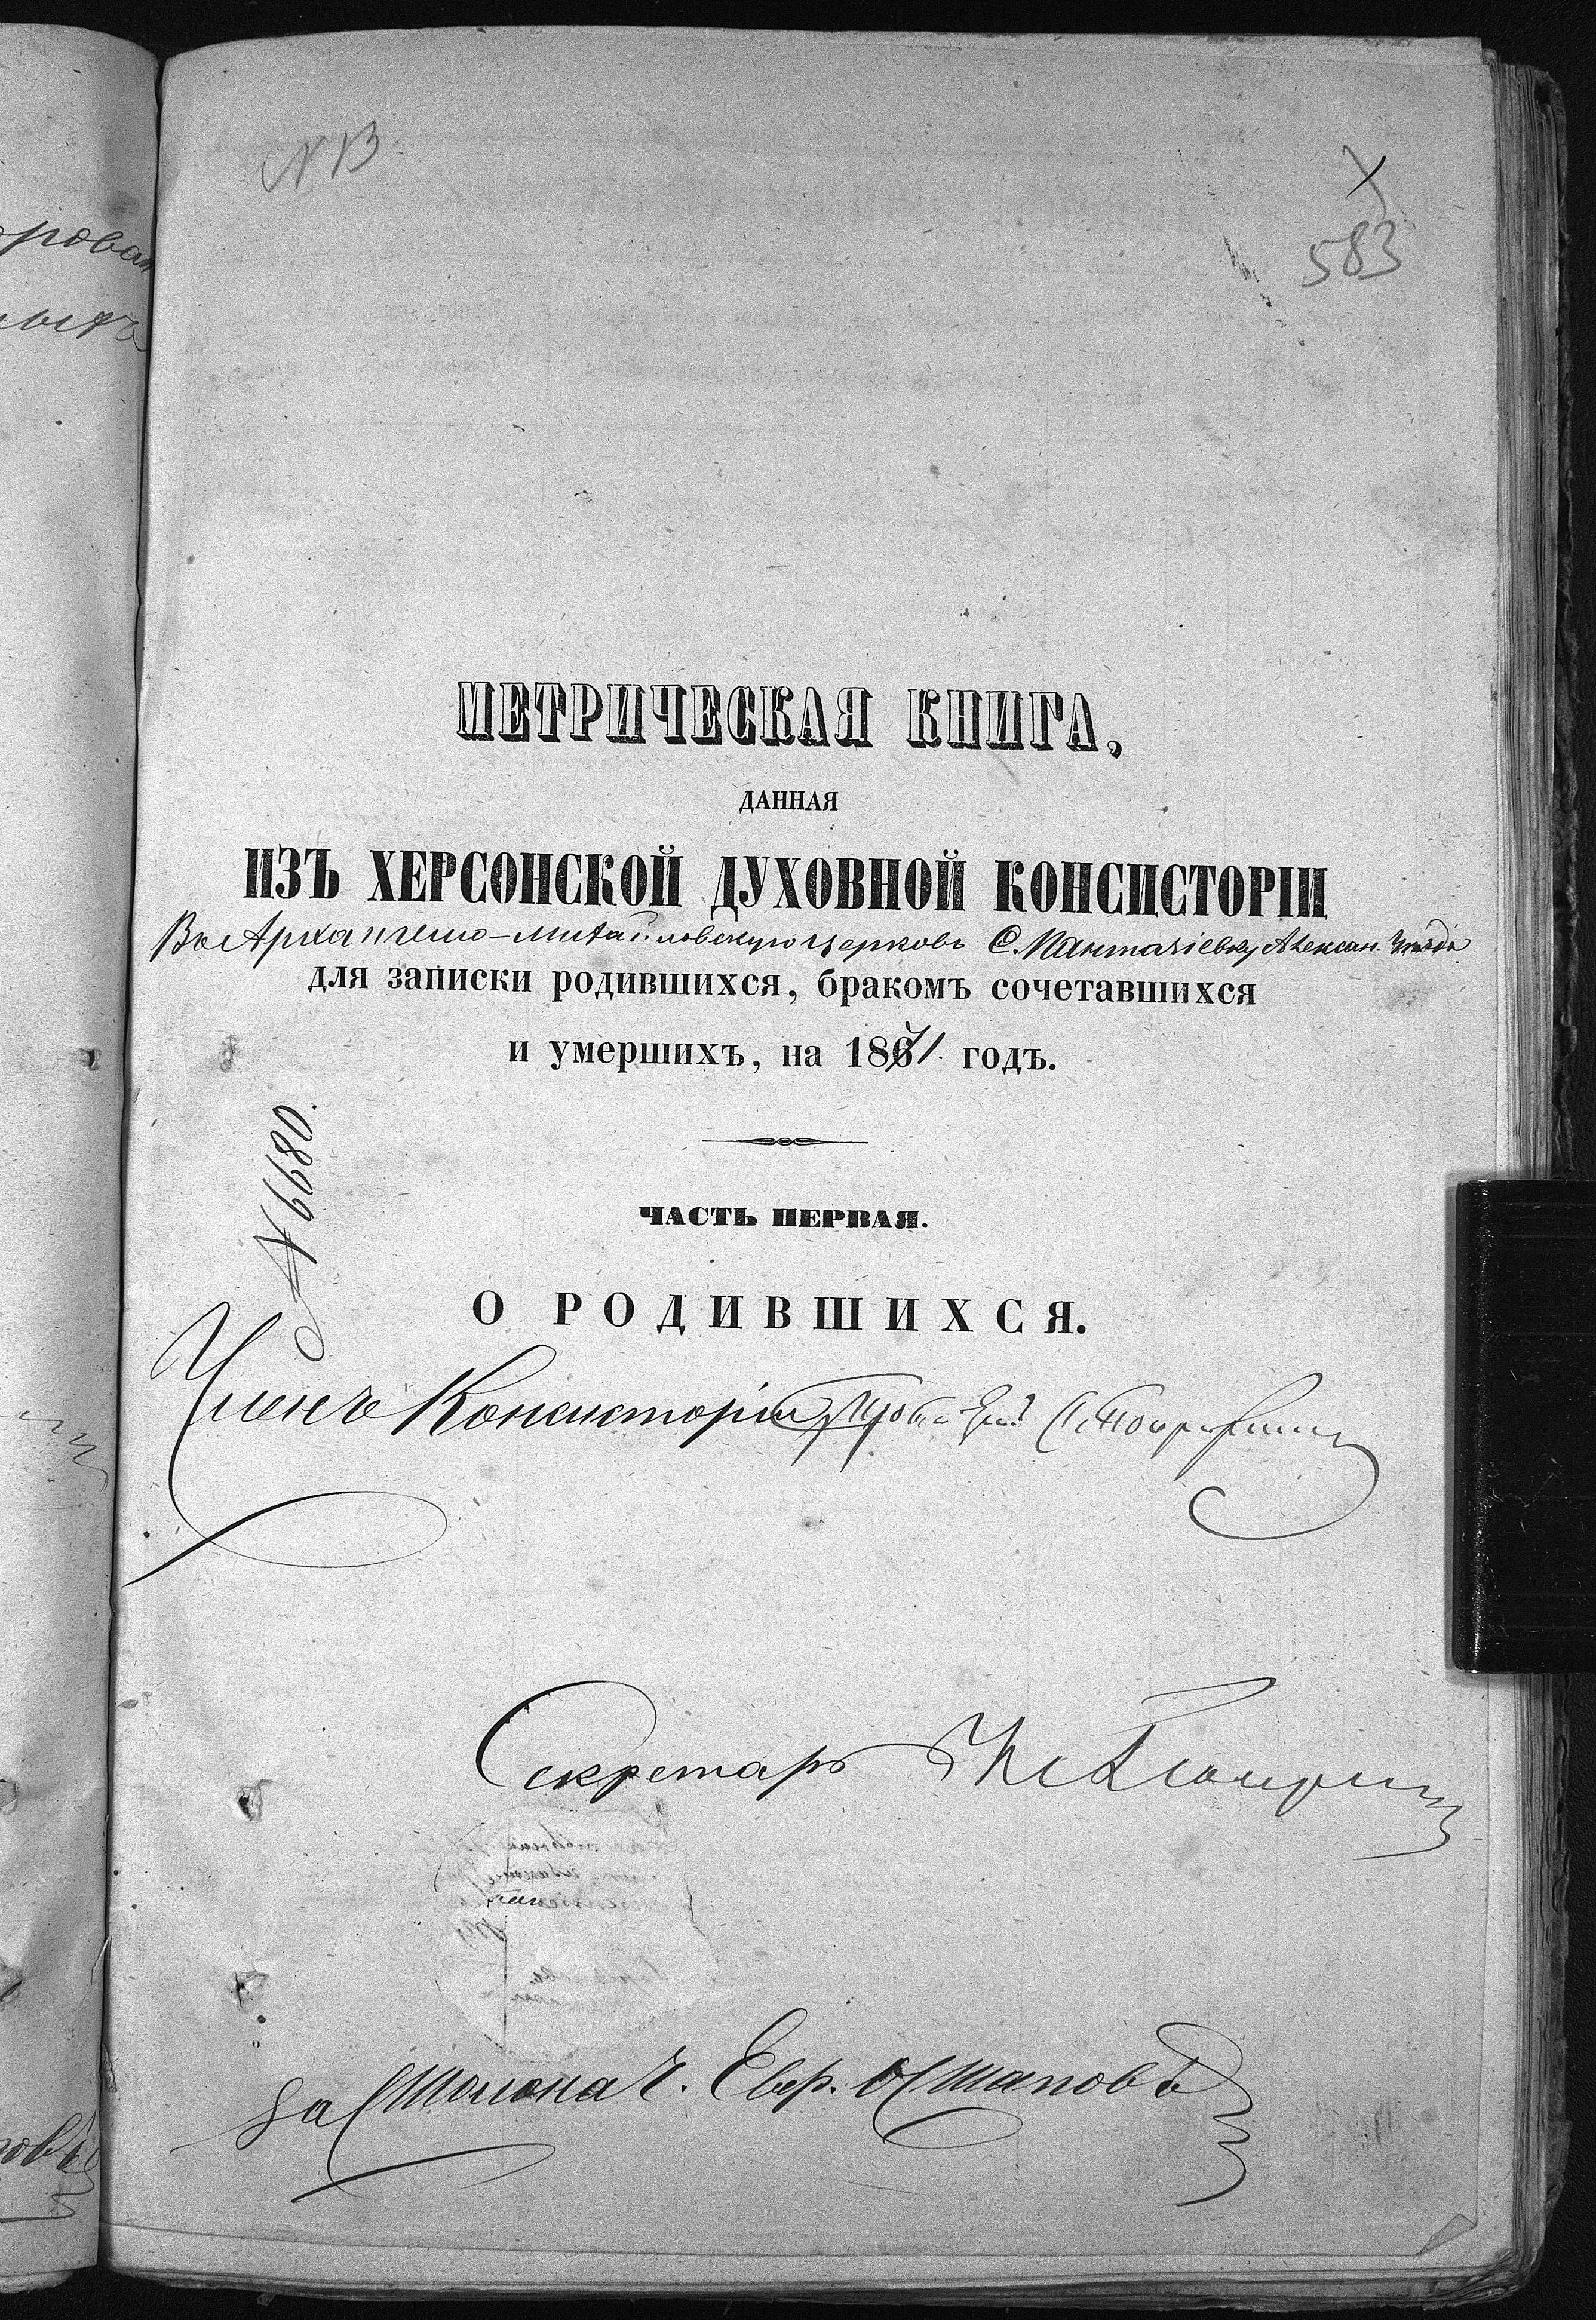 NB
583
МЕТРИЧЕСКАЯ КНИГА,
ДАННАЯ
ИЗЪ ХЕРСОНСКОЙ ДУХОВНОЙ КОНСИСТОРІИ
Въ Архангело-Михайловскую церковь С. Пантазіевку Алексан. уѣзда
для записки родившихся, бракомъ сочетавшихся
и умершихъ, на 1871 годъ.
№ 6680.
ЧАСТЬ ПЕРВАЯ.
О РОДИВШИХСЯ.
Членъ Консисторіи
Секретарь
За Столонач. Евгр. Остаповъ